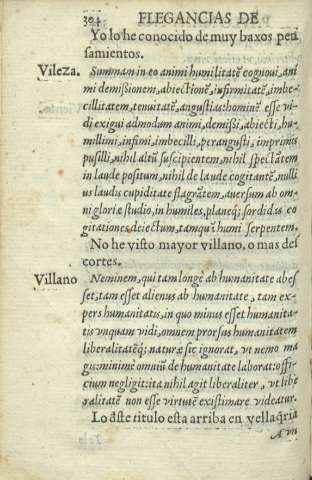 394 ELEGANCIAS DE
Yo lo he conocido de muy baxos pen
samientos.
Vileza. Summan in eo animi humilitatẽ cognoui, ani
mi demissionem, abiectionẽ, infirmitatẽ, imbe-
cillitatem, tenuitatẽ, angustias: hominẽ esse vi-
di exigui admodum animi, demissi, abiecti, hu-
millimi, infimi, imbecilli, perangusti, imprimis
pusilli, nihil altũ suscipientem, nihil spectãtem
in laude positum, nihil de laude cogitantẽ, nulli
us laudis cupiditate flagrãtem, auersum ab om-
ni gloriæ studio, in humiles, planeq́; sordidas co
gitationes deiectum, tamquã humi serpentem.
No he visto mayor villano, o mas des
cortes.
Villano Neminem, qui tam longè ab humanitate abes
set, tam esset alienus ab humanitate, tam ex-
pers humanitatis, in quo minus esset humanita-
tis vnquam vidi, omnem prorsus humanitatem
liberalitatẽq́; naturæ sic ignorat, vt nemo ma
gis: minimè omniũ de humanitate laborat: offi-
cium negligit: ita nihil agit liberaliter, vt libe
ralitatẽ non esse virtutẽ existimare videatur.
Lo dste titulo esta arriba en vellaq̃ria